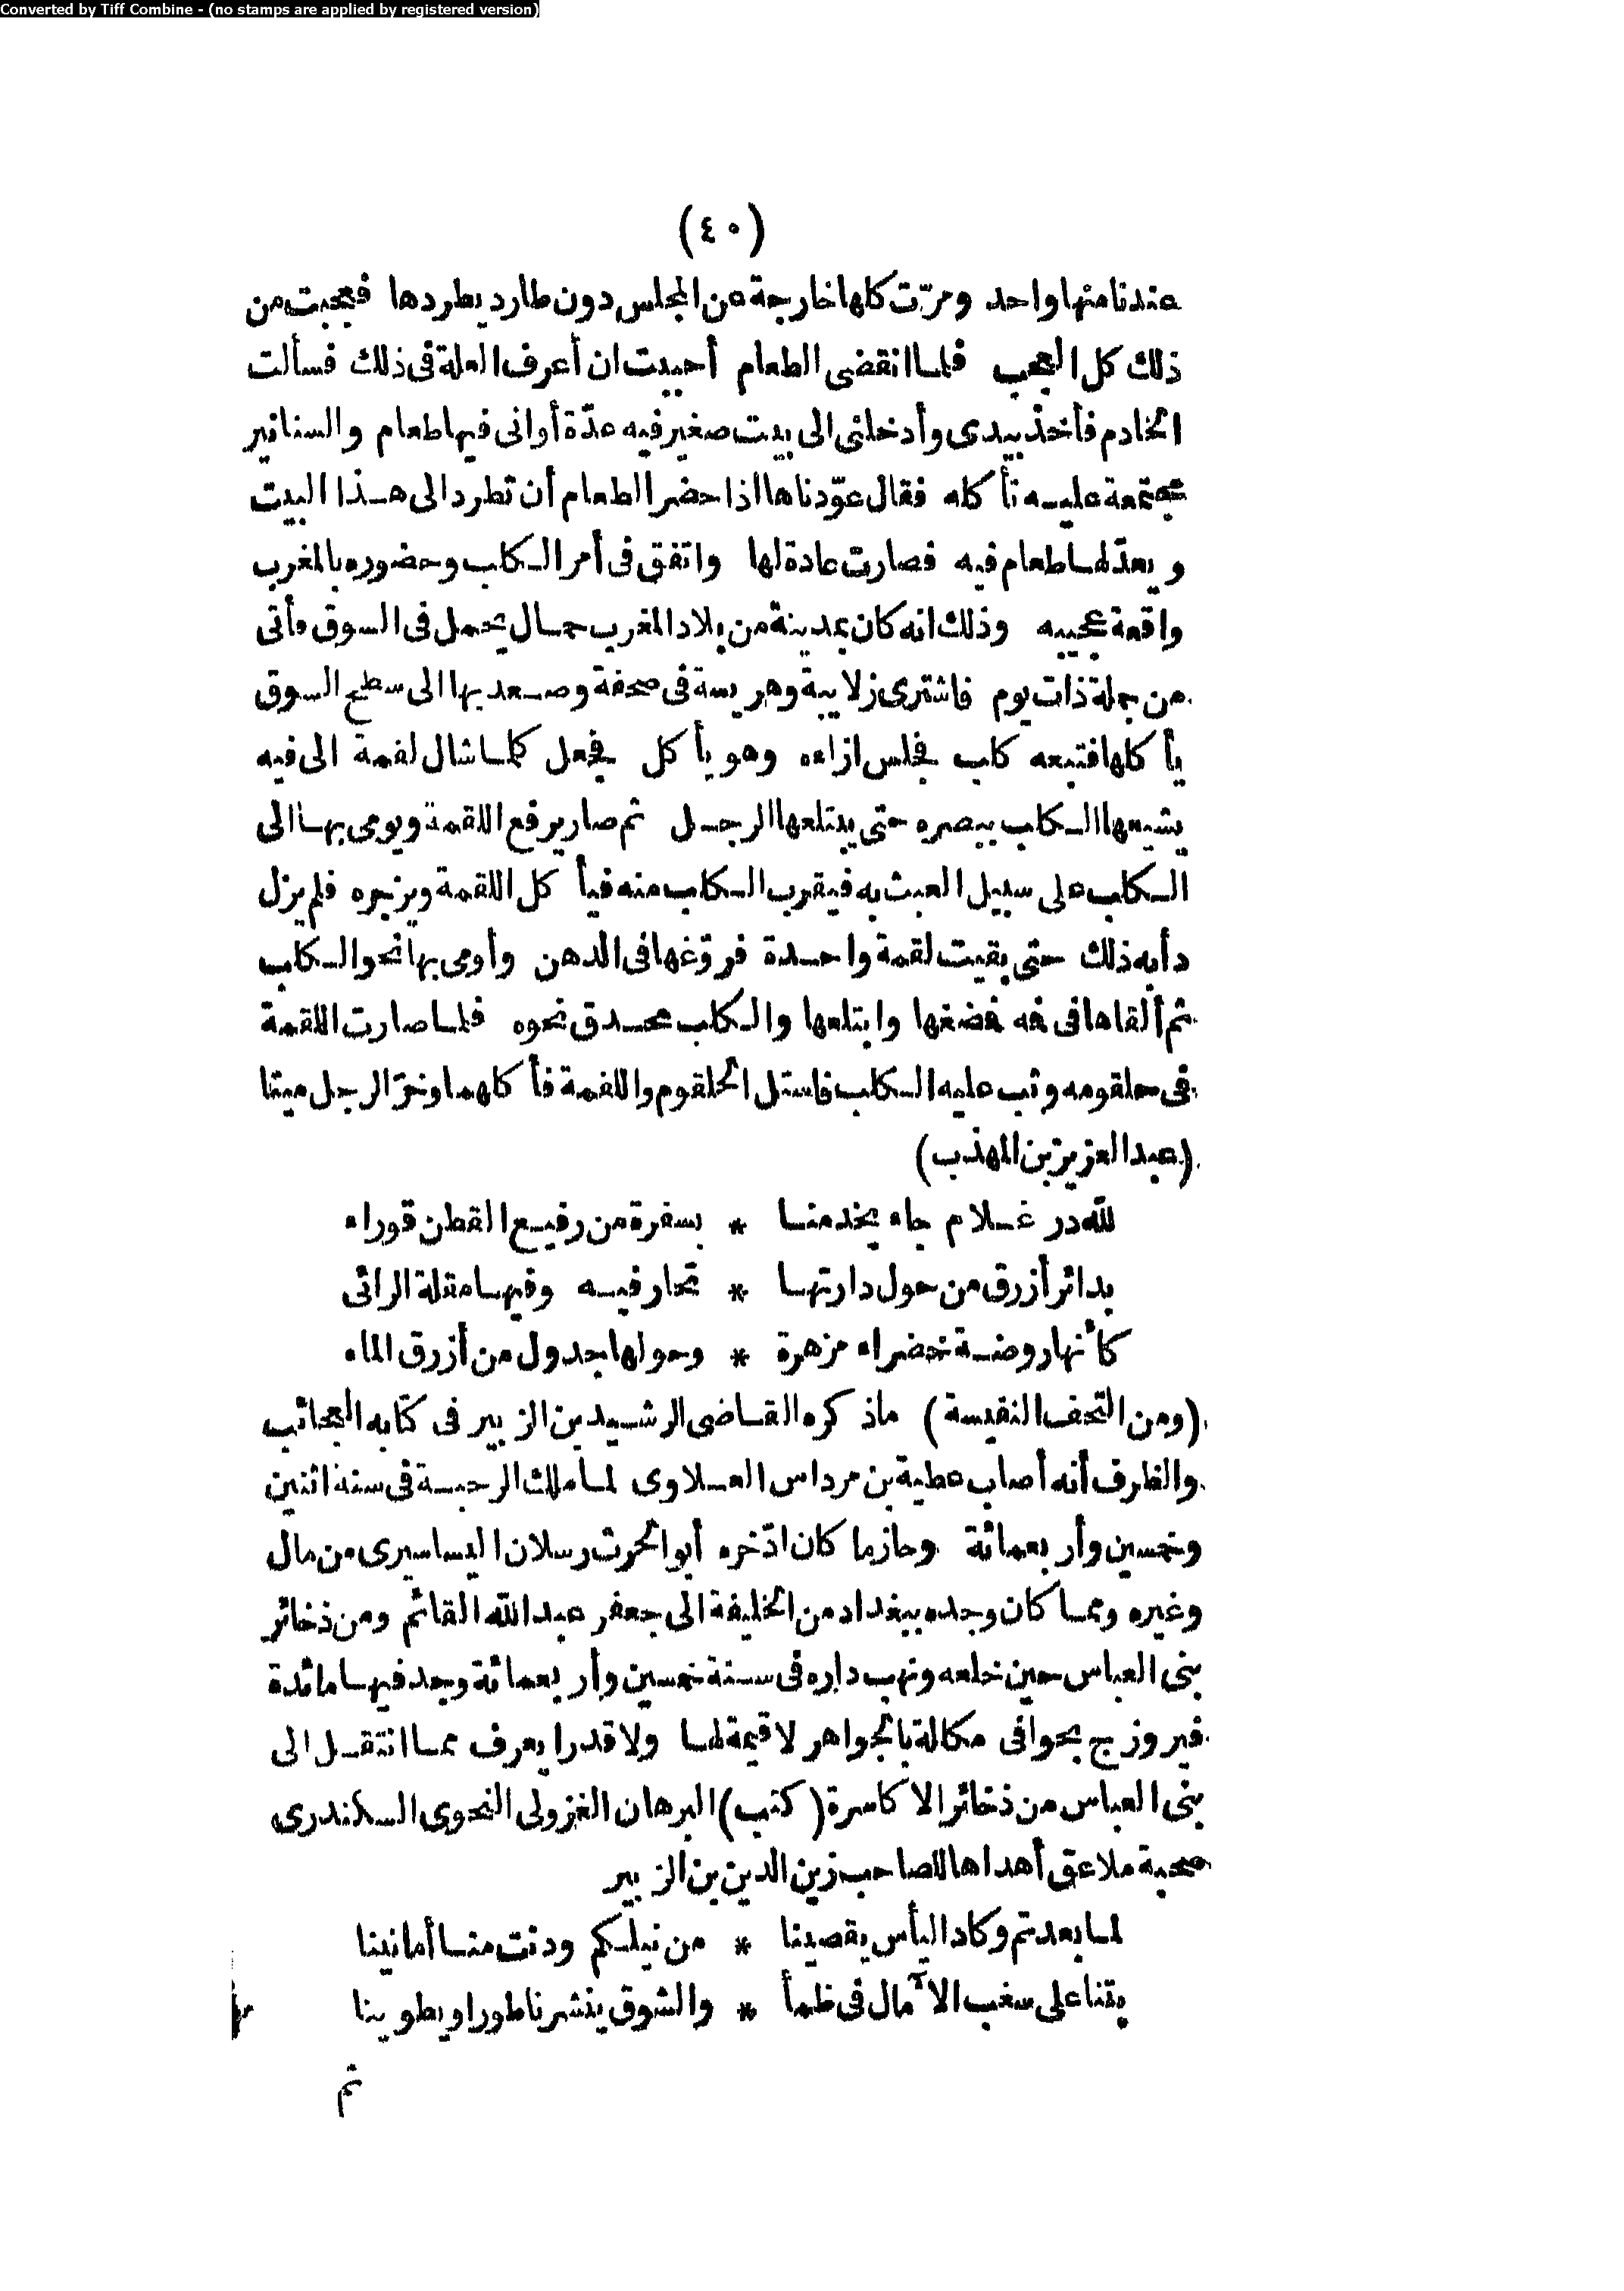 Converted by Tiff Combine - (no stamps are applied by registered version)
(٤٠)
عندنا منها واحد ومرّت كلها خارجة عن المجلس دون طارد يطردها فعجبت من
ذلك كل العجب فلما انقضى الطعام أحببت ان أعرف العلة فى ذلك فسألت
الخادم فأخذ بيدى وأدخلنى الى بيت صغير فيه عدّة أوانى فيها طعام والسنانير
مجتمعة عليه تأكله فقال عوّدناها اذا حضر الطعام أن تطرد الى هذا البيت
ويعدّ لها طعام فيه فصارت عادة لها واتفق فى أمر الكلب وحضوره بالمغرب
واقعة عجيبه وذلك انه كان بمدينة من بلاد المغرب حمال يحمل فى السوق فأتى
من جملة ذات يوم فاشترى زلابية وهريسة فى صحفة وصعد بها الى سطح السوق
يأكلها فتبعه كلب فجلس ازاءه وهو يأكل فجعل كلما شال لقمة الى فيه
يشيعها الكلب ببصره حتى يبتلعها الرجل ثم صار يرفع اللقمة ويومى بها الى
الكلب على سبيل العبث به فيقرب الكلب منه فيأكل اللقمة ويزجره فلم يزل
دأبه ذلك حتى بقيت لقمة واحدة فروّغها فى الدهن وأومى بها نحو الكلب
ثم ألقاها فى فمه فمضغها وابتلعها والكلب محدق نحوه فلما صارت اللقمة
فى حلقومه وثب عليه الكلب فاستل الحلقوم واللقمة فأكلهما وخرّ الرجل ميتا
(عبد العزيز بن المهذب)
لله در غلام جاء يخدمنا * بسفرة من رفيع القطن قوراء
بدائر أزرق من حول دارتها * تحار فيه وفيها مقلة الرائى
كأنها روضة خضراء مزهرة * وحولها جدول من أزرق الماء
(ومن التحف النفيسة) ماذكره القاضى الرشيد بن الزبير فى كتابه العجائب
والظرف أنه أصاب عطية بن مرداس العلاوى لما ملك الرحبة فى سنة اثنين
وخمسين وأربعمائة وحاز ما كان ادّخره أبو الحرث رسلان البساسيرى من مال
وغيره ومما كان وجده ببغداد من الخليفة الى جعفر عبد الله القائم ومن ذخائر
بنى العباس حين خلعه ونهب داره فى سنة خمسين وأربعمائة وجد فيها مائدة
فيروزج بحوافى مكللة بالجواهر لا قيمة لها ولا قدرا يعرف مما انتقل الى
بنى العباس من ذخائر الاكاسرة (كتب) البرهان الغزولى النحوى السكندرى
صحبة ملاعق أهداها للصاحب زين الدين بن الزبير
لما بعدتم وكاد اليأس يقصينا * من نيلكم ودنت منا أمانينا
بتنا على سغب الآمال فى ظمأ * والشوق ينشرنا طورا ويطوينا
ثم